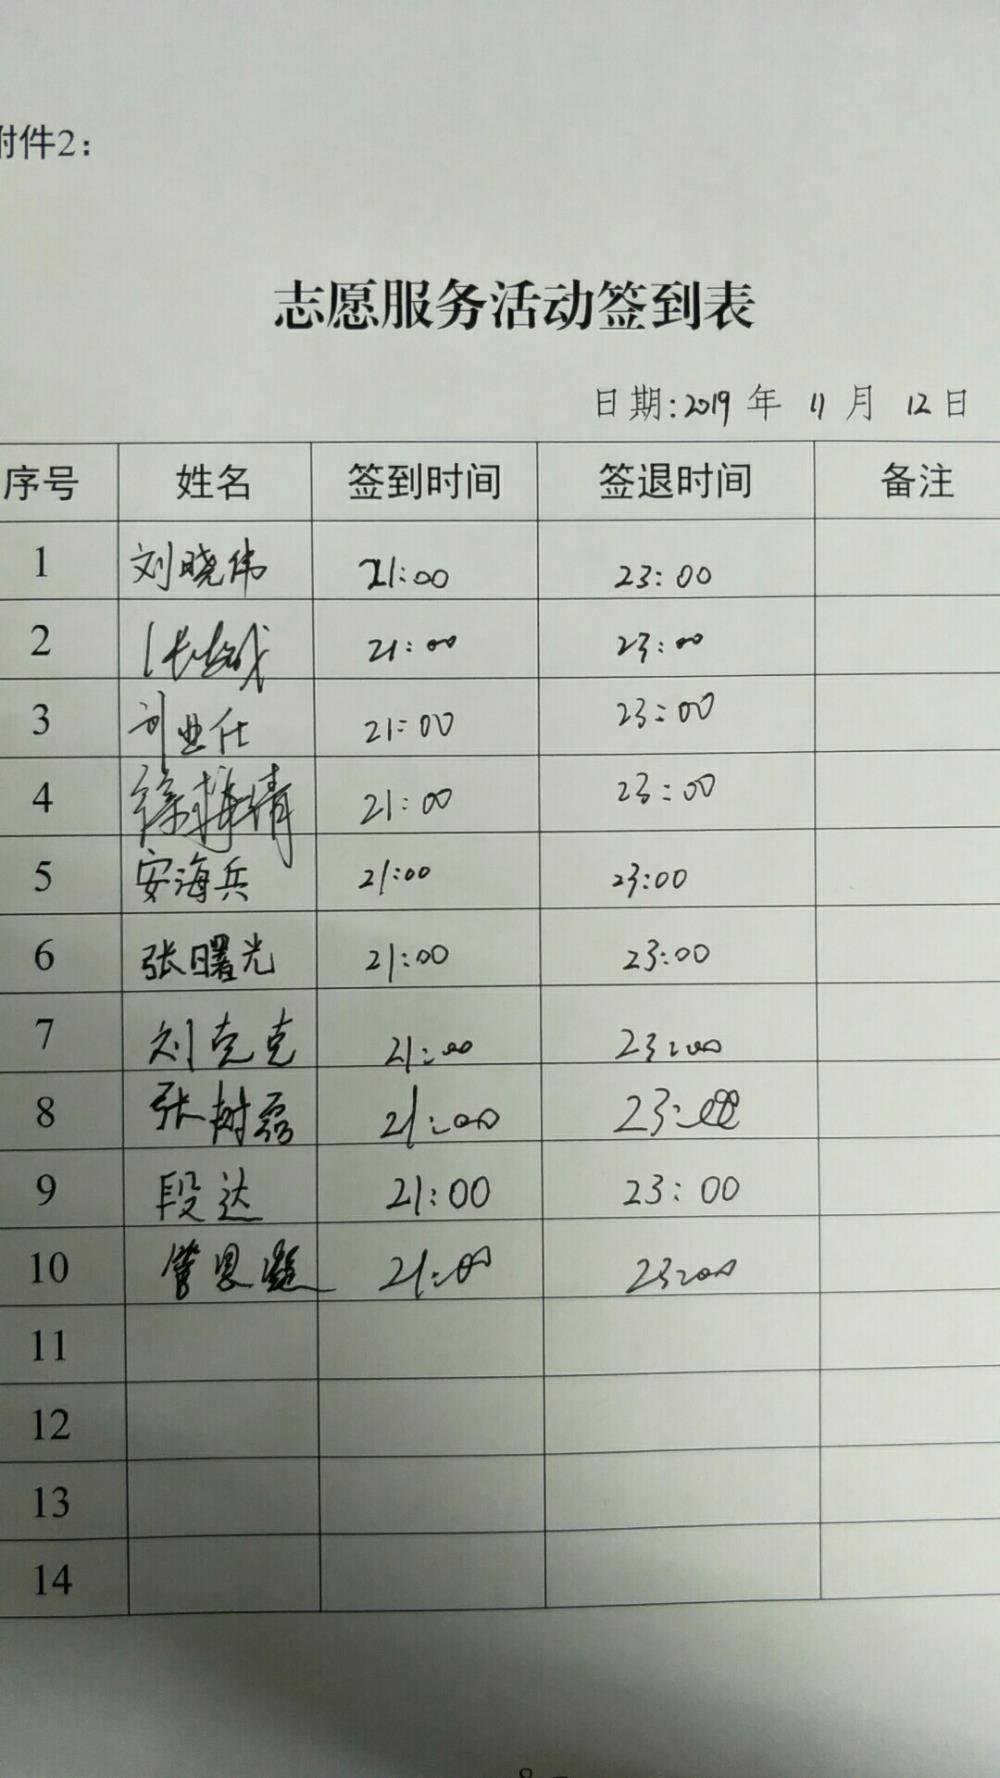 附件2：
志愿服务活动签到表
日期:2019年 11月 12日
序号 姓名 签到时间 签退时间 备注
1 刘晓伟 21:00 23:00
2 21:00 23:00
3 刘业仕 21:00 23:00
4 徐梅倩 21:00 23:00
5 安海兵 21:00 23:00
6 张曙光 21:00 23:00
7 刘克克 21:00 23:00
8 张树磊 21:00 23:00
9 段达 21:00 23:00
10 21:00 23:00
11
12
13
14